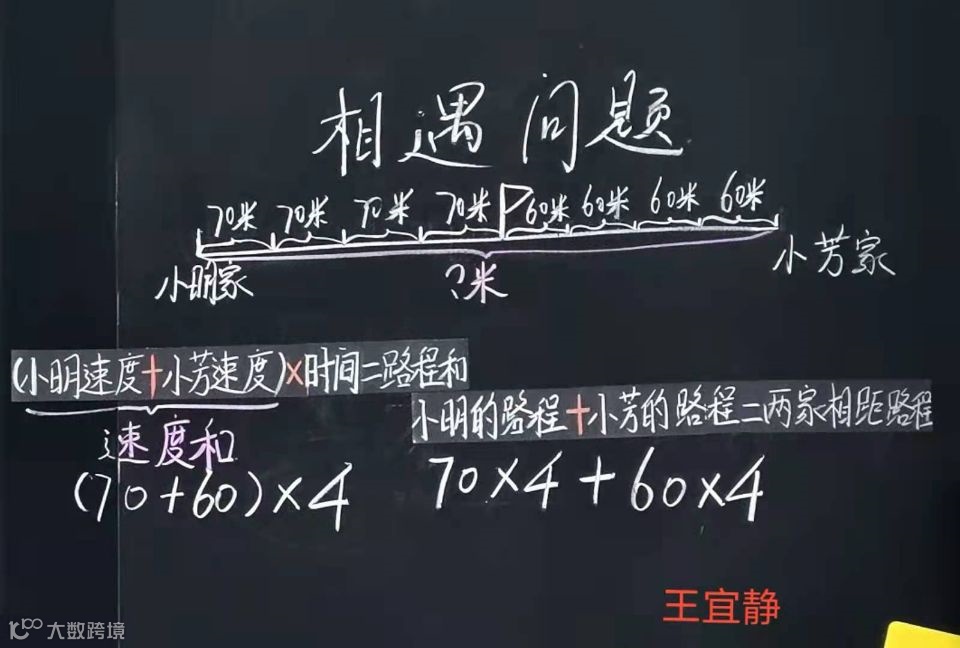 相遇问题
70米 70米 70米 70米 60米 60米 60米 60米
小明家 ?米 小芳家
(小明速度+小芳速度)×时间=路程和
小明的路程+小芳的路程=两家相距路程
速度和
(70+60)×4 70×4+60×4
王宜静
大数跨境